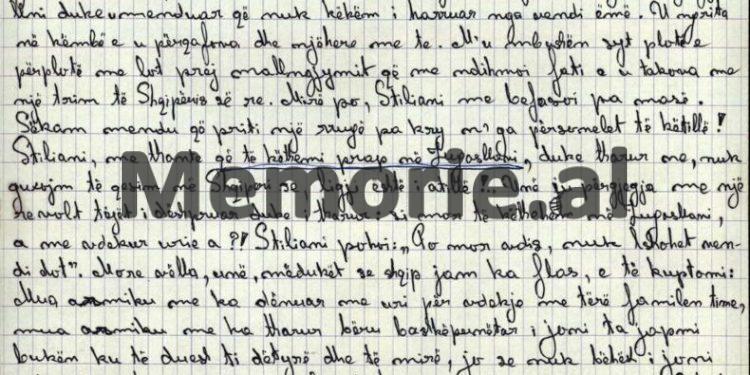 duke menduar që nuk kêkëm i harruar nga vendi ëmë. U ngrita
në këmbë e u përqafova dhe njëhere me te. M'u mbushën syt plot e
përplotë me lot prej mallngjymit që me ndihmoi fati e u takova me
një trim të Shqipëris së re. Mirë po, Stiliani me befasoi pa masë.
Sêkam mendu që priti një rrugë pa kry m'ga përsomelet të këtillë!
Stiliani, me thante që të këthemi prap në Jugosllavi, duke tharur me, nuk
guxojm të qesim në Shqiperi se ligji është i atillë!... Unë ju përgjegja me një
revolt tëjet i dëspruar duke tharur: si mor të këthehem në Jugosllavi,
a me vdekur urie a?! Stiliani pohoi: „Po mor vdis, nuk lshohet ven-
di dot". More vëlla, unë, mëduket se shqip jam ka flas, e të kuptomi:
Mua armiku me ka dënuar me uri për vdekje me tërë familen time,
mua armiku me ka tharur bëru bashkëpunëtar i joni ta japmi
bukën ku të duesh ti dëtyrë dhe të mirë, jo se nuk bëhësh i joni
Memorie.al